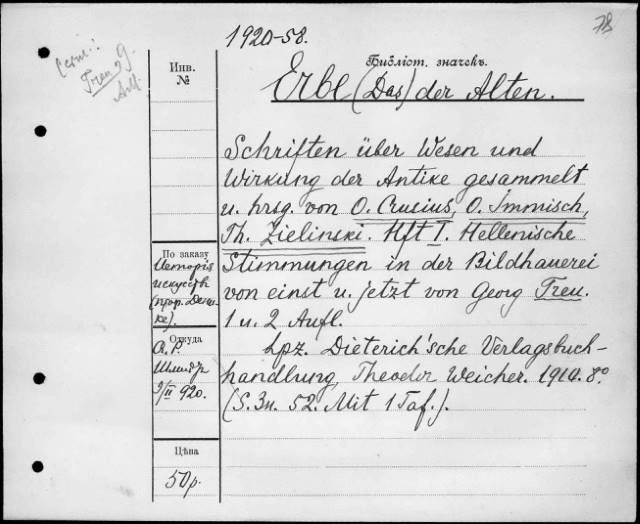 78
1920-58.
Treu, G.
Инв.
№
Библіот. значекъ.
Erbe (Das) der Alten.
Schriften über Wesen und
Wirkung der Antike gesammelt
u. hrsg. von O. Crusius, O. Immisch,
Th. Zielinski. Hft I. Hellenische
Stimmungen in der Bildhauerei
von einst u. jetzt von Georg Treu.
1 u. 2 Aufl.
Lpz. Dieterich'sche Verlagsbuch-
handlung, Theodor Weicher. 1910. 8°
(S. 3u. 52. Mit 1 Taf.).
По заказу
Исторія
искусств
Откуда
А. Р.
9/II 920.
Цѣна
50 р.